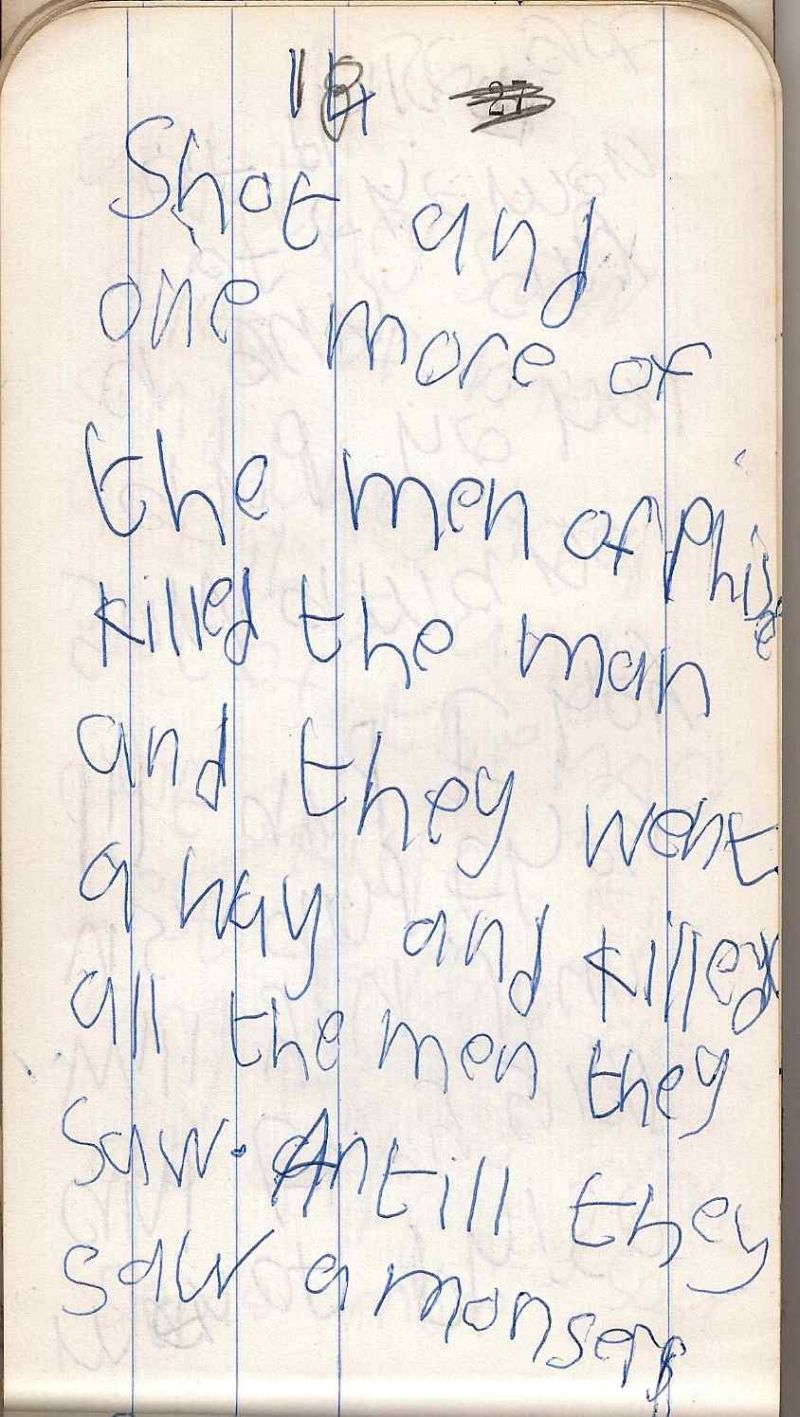 18 27
Shot and
one more of
the men of
killed the man
and they went
a way and killed
all the men they
saw. Antill they
saw a monsers